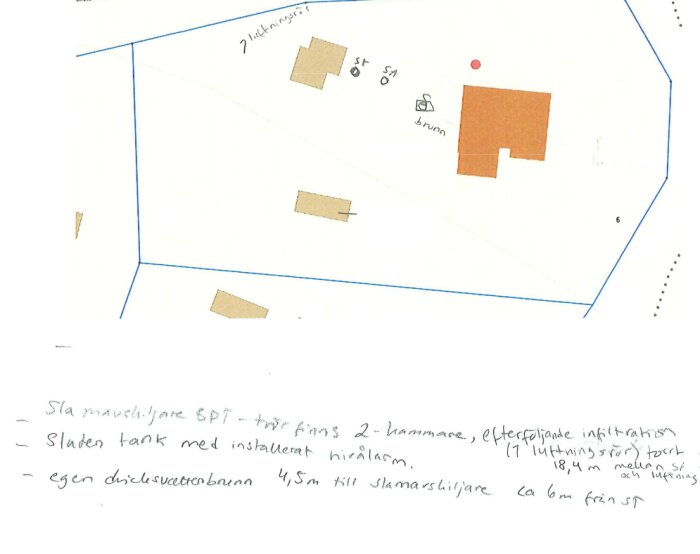 1 luftningsrör
ST
SA
brunn
6
- Slamavskiljare BDT - finns 2-kammare, efterföljande infiltration
(1 luftningsrör) torrt
- Sluten tank med installerat nivålarm.
18,4 m mellan SA
och luftning
- egen dricksvattenbrunn 4,5m till slamavskiljare ca 6m från ST